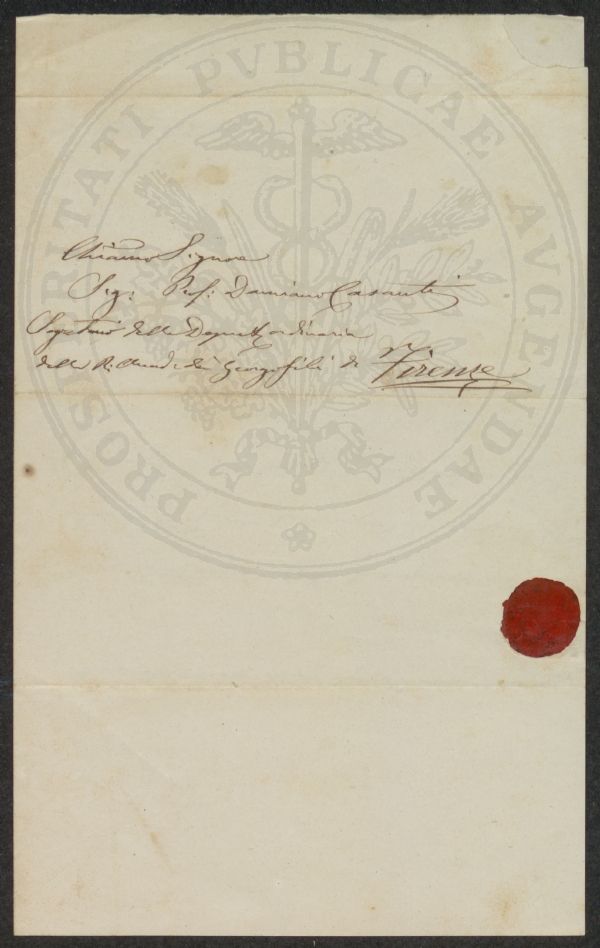 PROSPERITATI PVBLICAE AVGENDAE
Chiarmo Signore
Sig: Prof: Damiano Casanti
Segretario della Deput. ordinaria
della R. Accad. dei Georgofili di Firenze